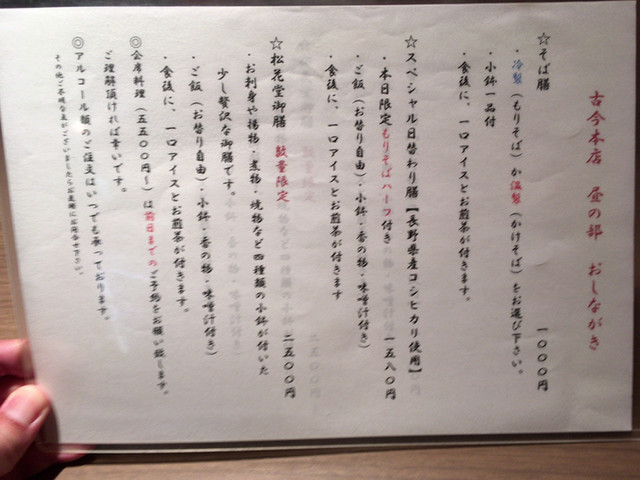 古今本店 昼の部 おしながき
☆そば膳 一〇〇〇円
・冷製(もりそば)か温製(かけそば)をお選び下さい。
・小鉢一品付
・食後に、一口アイスとお煎茶が付きます。
☆スペシャル日替わり膳【長野県産コシヒカリ使用】
・本日限定もりそばハーフ付き 一五八〇円
・ご飯(お替り自由)・小鉢・香の物・味噌汁付き)
・食後に、一口アイスとお煎茶が付きます
☆松花堂御膳 数量限定 二五〇〇円
・お刺身や揚物・煮物・焼物など四種類の小鉢が付いた
少し贅沢な御膳です。
・ご飯(お替り自由)・小鉢・香の物・味噌汁付き)
・食後に、一口アイスとお煎茶が付きます。
◎会席料理(五五〇〇円~)は前日までのご予約をお願い致します。
ご理解頂ければ幸いです。
◎アルコール類のご注文はいつでも承っております。
その他ご不明な点がございましたらお気軽にお問合せ下さい。